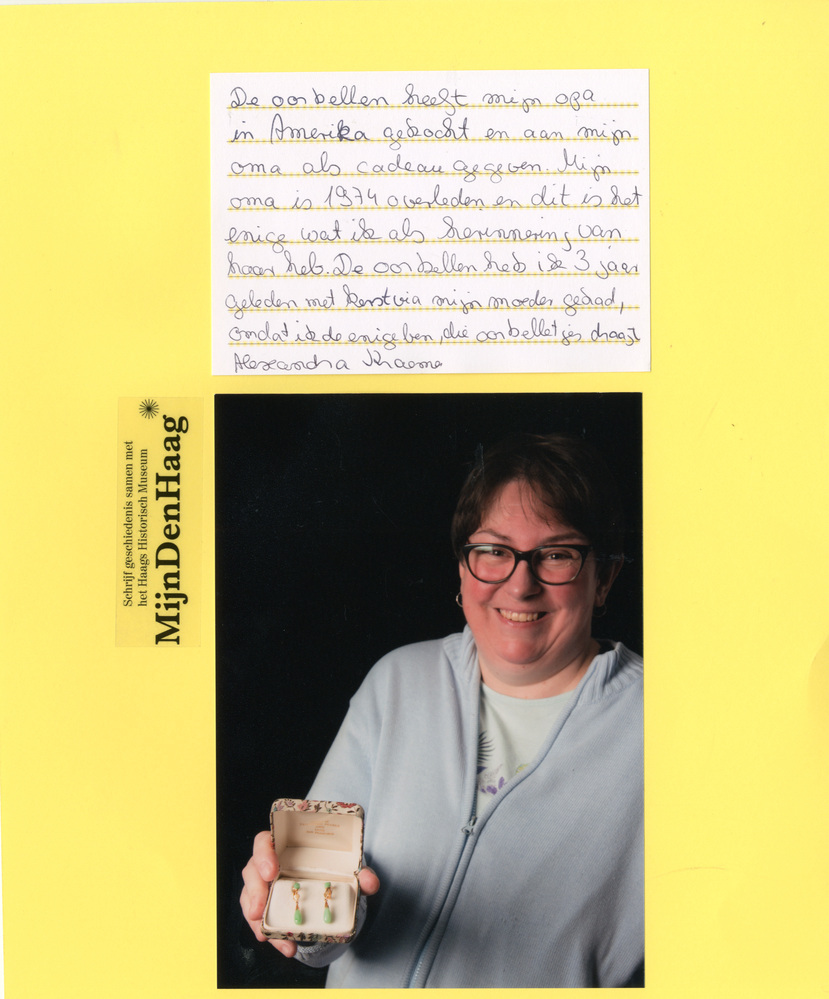 De oorbellen heeft mijn opa
in Amerika gekocht en aan mijn
oma als cadeau gegeven. Mijn
oma is 1974 overleden en dit is het
enige wat ik als herinnering van
haar heb. De oorbellen heb ik 3 jaar
geleden met kerst via mijn moeder gehad,
omdat ik de enige ben, die oorbelletjes draagt
Alexandra
Schrijf geschiedenis samen met
het Haags Historisch Museum
MijnDenHaag